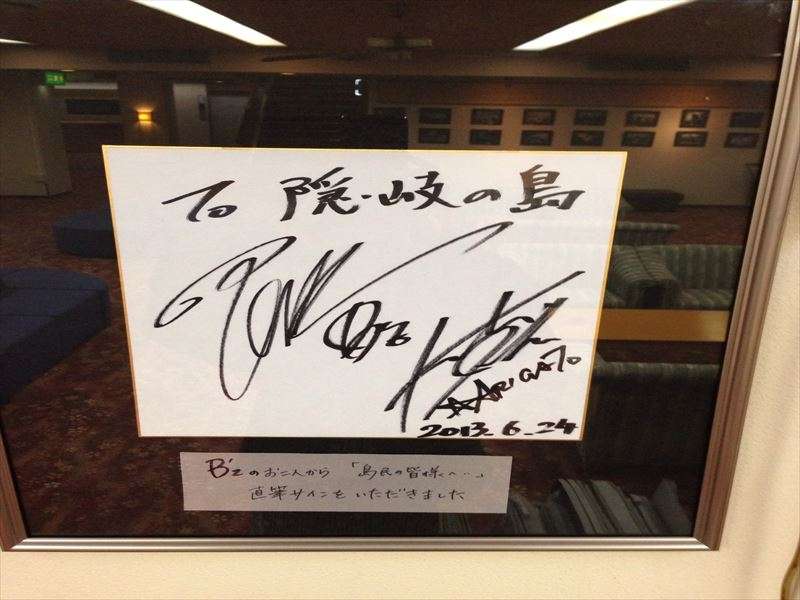 To 隠岐の島
B'z
ARIGATO
2013. 6. 24
B'zのお二人から 「島民の皆様へ…」
直筆サインをいただきました